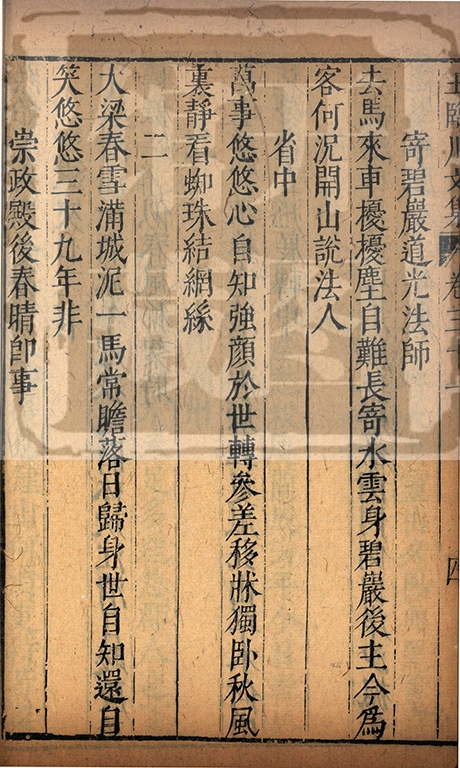 王臨川文集 卷三十一 四
寄碧巖道光法師
去馬來車擾擾塵自難長寄水雲身碧巖後主今爲
客何況開山說法人
省中
萬事悠悠心自知強顏於世轉參差移狀獨臥秋風
裏靜看蜘珠結網絲
二
大梁春雪滿城泥一馬常瞻落日歸身世自知還自
笑悠悠三十九年非
崇政殿後春晴卽事